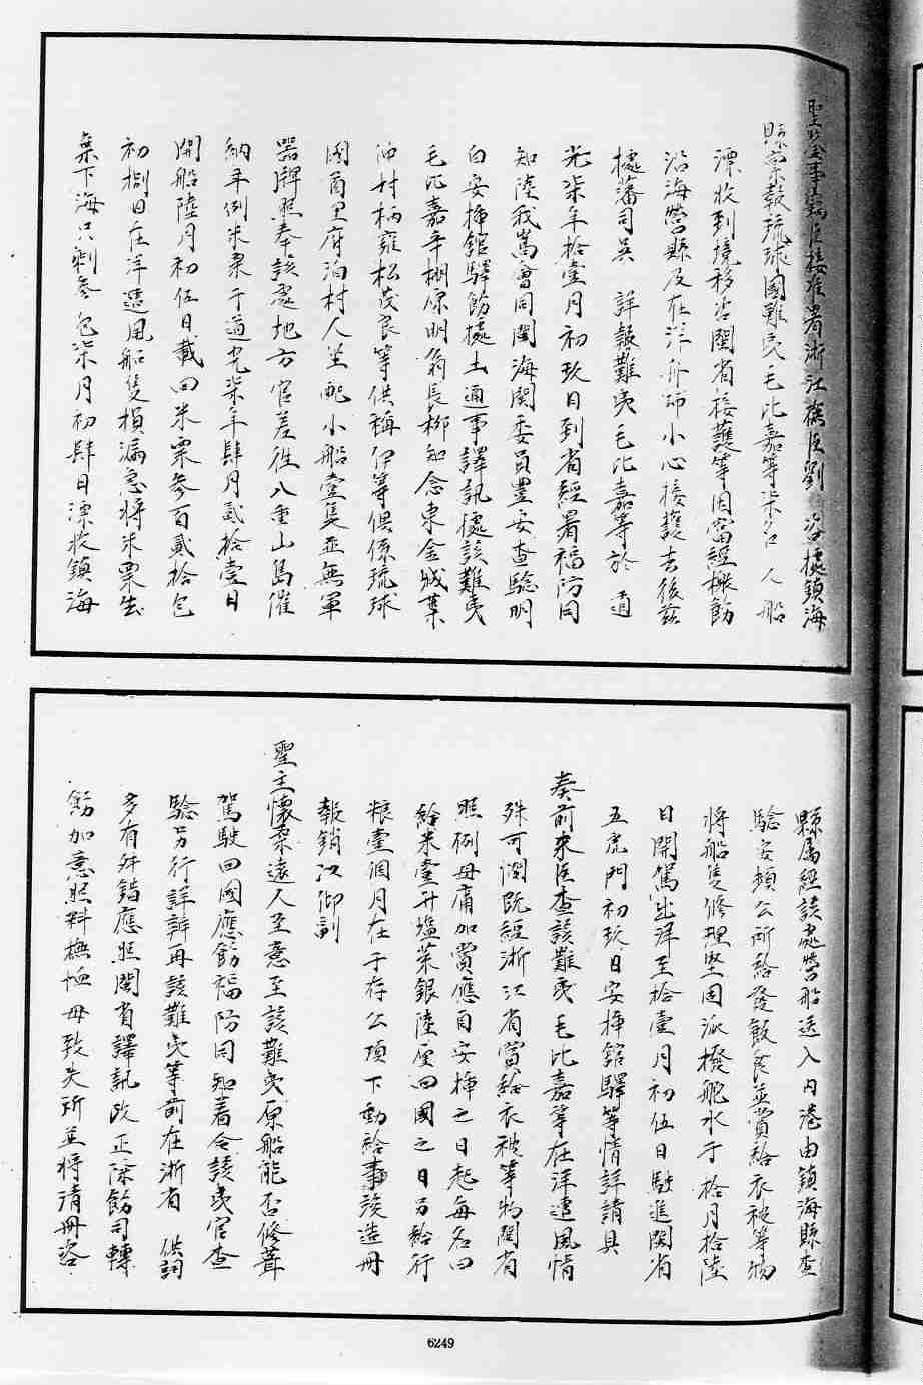 聖鑒事竊臣接准署浙江撫臣劉 咨據鎮海
縣稟報琉球國難民毛比嘉等柒名人船
漂收到境移咨閩省接護等因當經檄飭
沿海營縣及在洋舟師小心接護去後茲
據藩司吳 詳報難夷毛比嘉等於道
光柒年拾壹月初玖日到省經署福防同
知陸我嵩會同閩海関委員豊安查驗明
白安揷館驛飭據土通事譯訊據該難夷
毛比嘉平棚原明翁長柳知念東金城葉
沖村柄雍松茂良等供稱伊等俱係琉球
國首里府泊村人坐配小船壹隻並無軍
器牌照奉該處地方官差徃八重山島催
納年例米粟于道光柒年肆月貳拾壹日
開船陸月初伍日載回米粟參百貳拾包
初捌日在洋遭風船隻損漏急將米粟丟
棄下海只剩參包柒月初肆日漂收鎮海
縣属經該處營船送入內港由鎮海縣查
驗安頓公所給發飯食並賞給衣被等物
將船隻修理堅固派撥舵水于拾月拾陸
日開駕出洋至拾壹月初伍日駛進閩省
五虎門初玖日安揷館驛等情詳請具
奏前來臣查該難夷毛比嘉等在洋遭風情
殊可憫既經浙江省賞給衣被等物閩省
照例毋庸加賞應自安揷之日起每名日
給米壹升塩菜銀陸厘回國之日另給行
粮壹個月在于存公項下動給事竣造冊
報銷以仰副
聖主懷柔遠人至意至該難夷原船能否修葺
駕駛回國應飭福防同知着令該夷官查
驗另行詳辦再該難夷等前在浙省 供詞
多有舛錯應照閩省譯訊改正除飭司轉
飭加意照料撫恤毋致失所並將清冊咨
6249